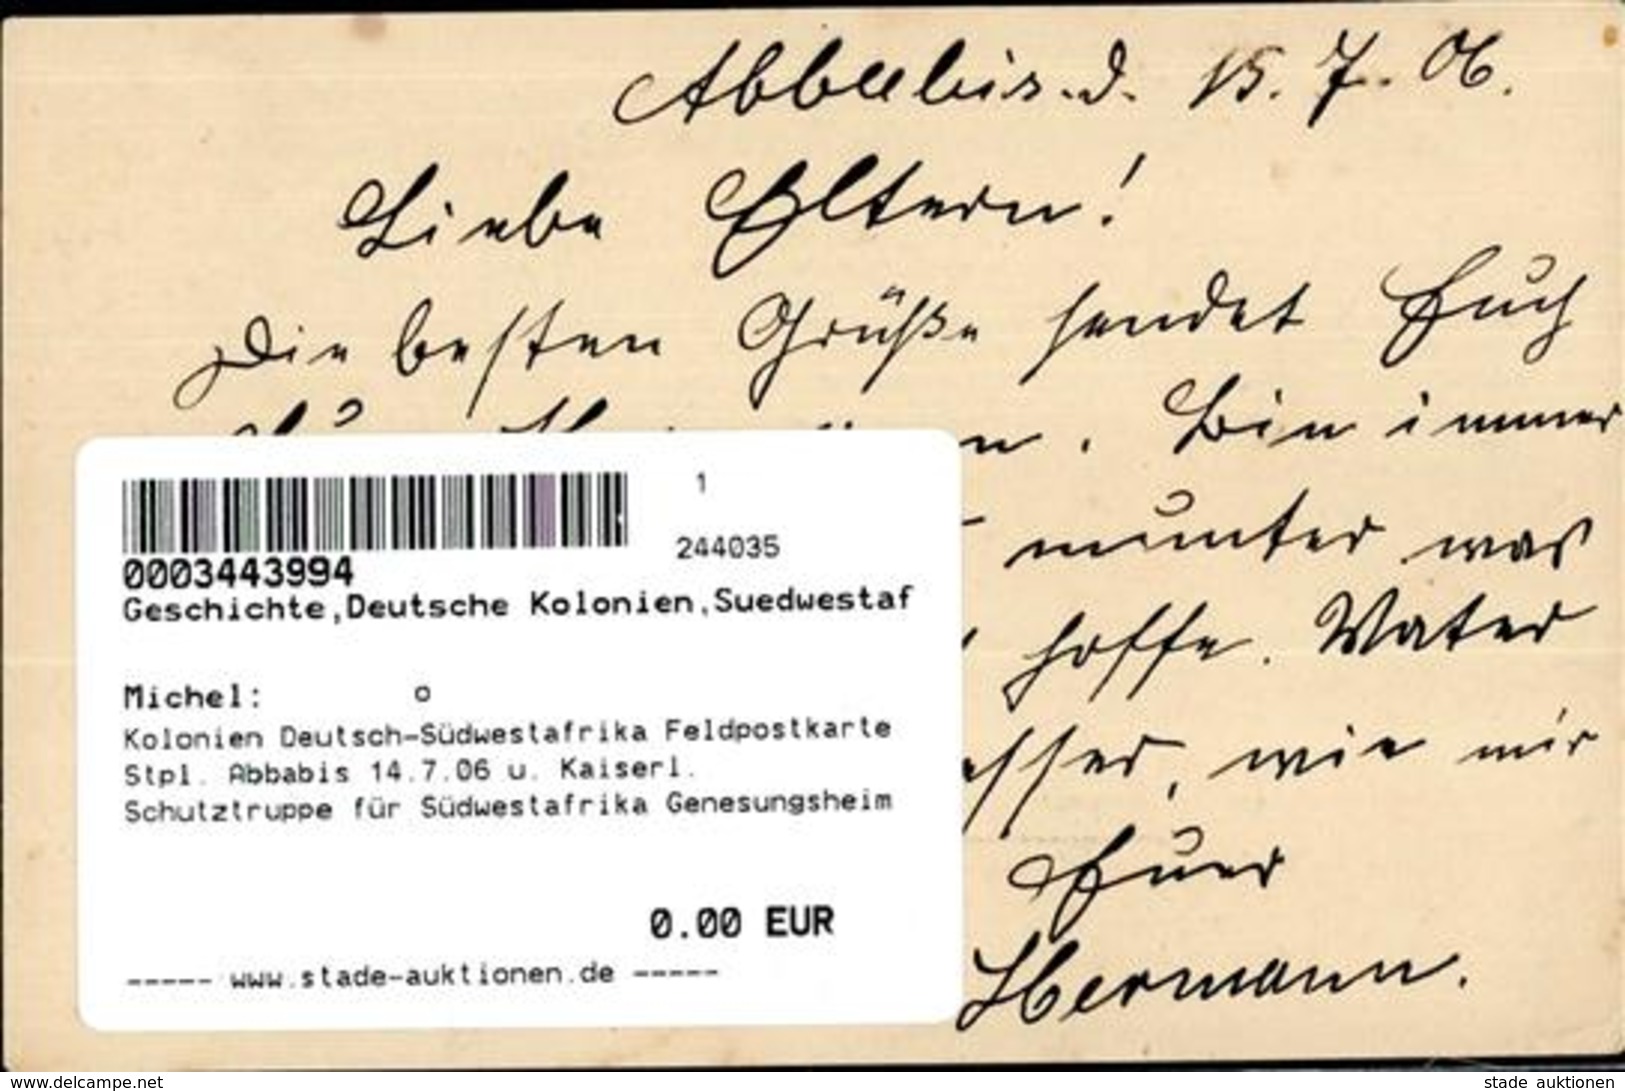 Abbabis. d. 15. 7. 06.
Liebe Eltern!
Die besten Grüße sendet Euch
Bin immer
munter was
hoffe. Vater
wie mir
Euer
Hermann.
1
244035
0003443994
Geschichte,Deutsche Kolonien,Suedwestaf
Michel: o
Kolonien Deutsch-Südwestafrika Feldpostkarte
Stpl. Abbabis 14.7.06 u. Kaiserl.
Schutztruppe für Südwestafrika Genesungsheim
0.00 EUR
----- www.stade-auktionen.de -----
www.delcampe.net
stade auktionen